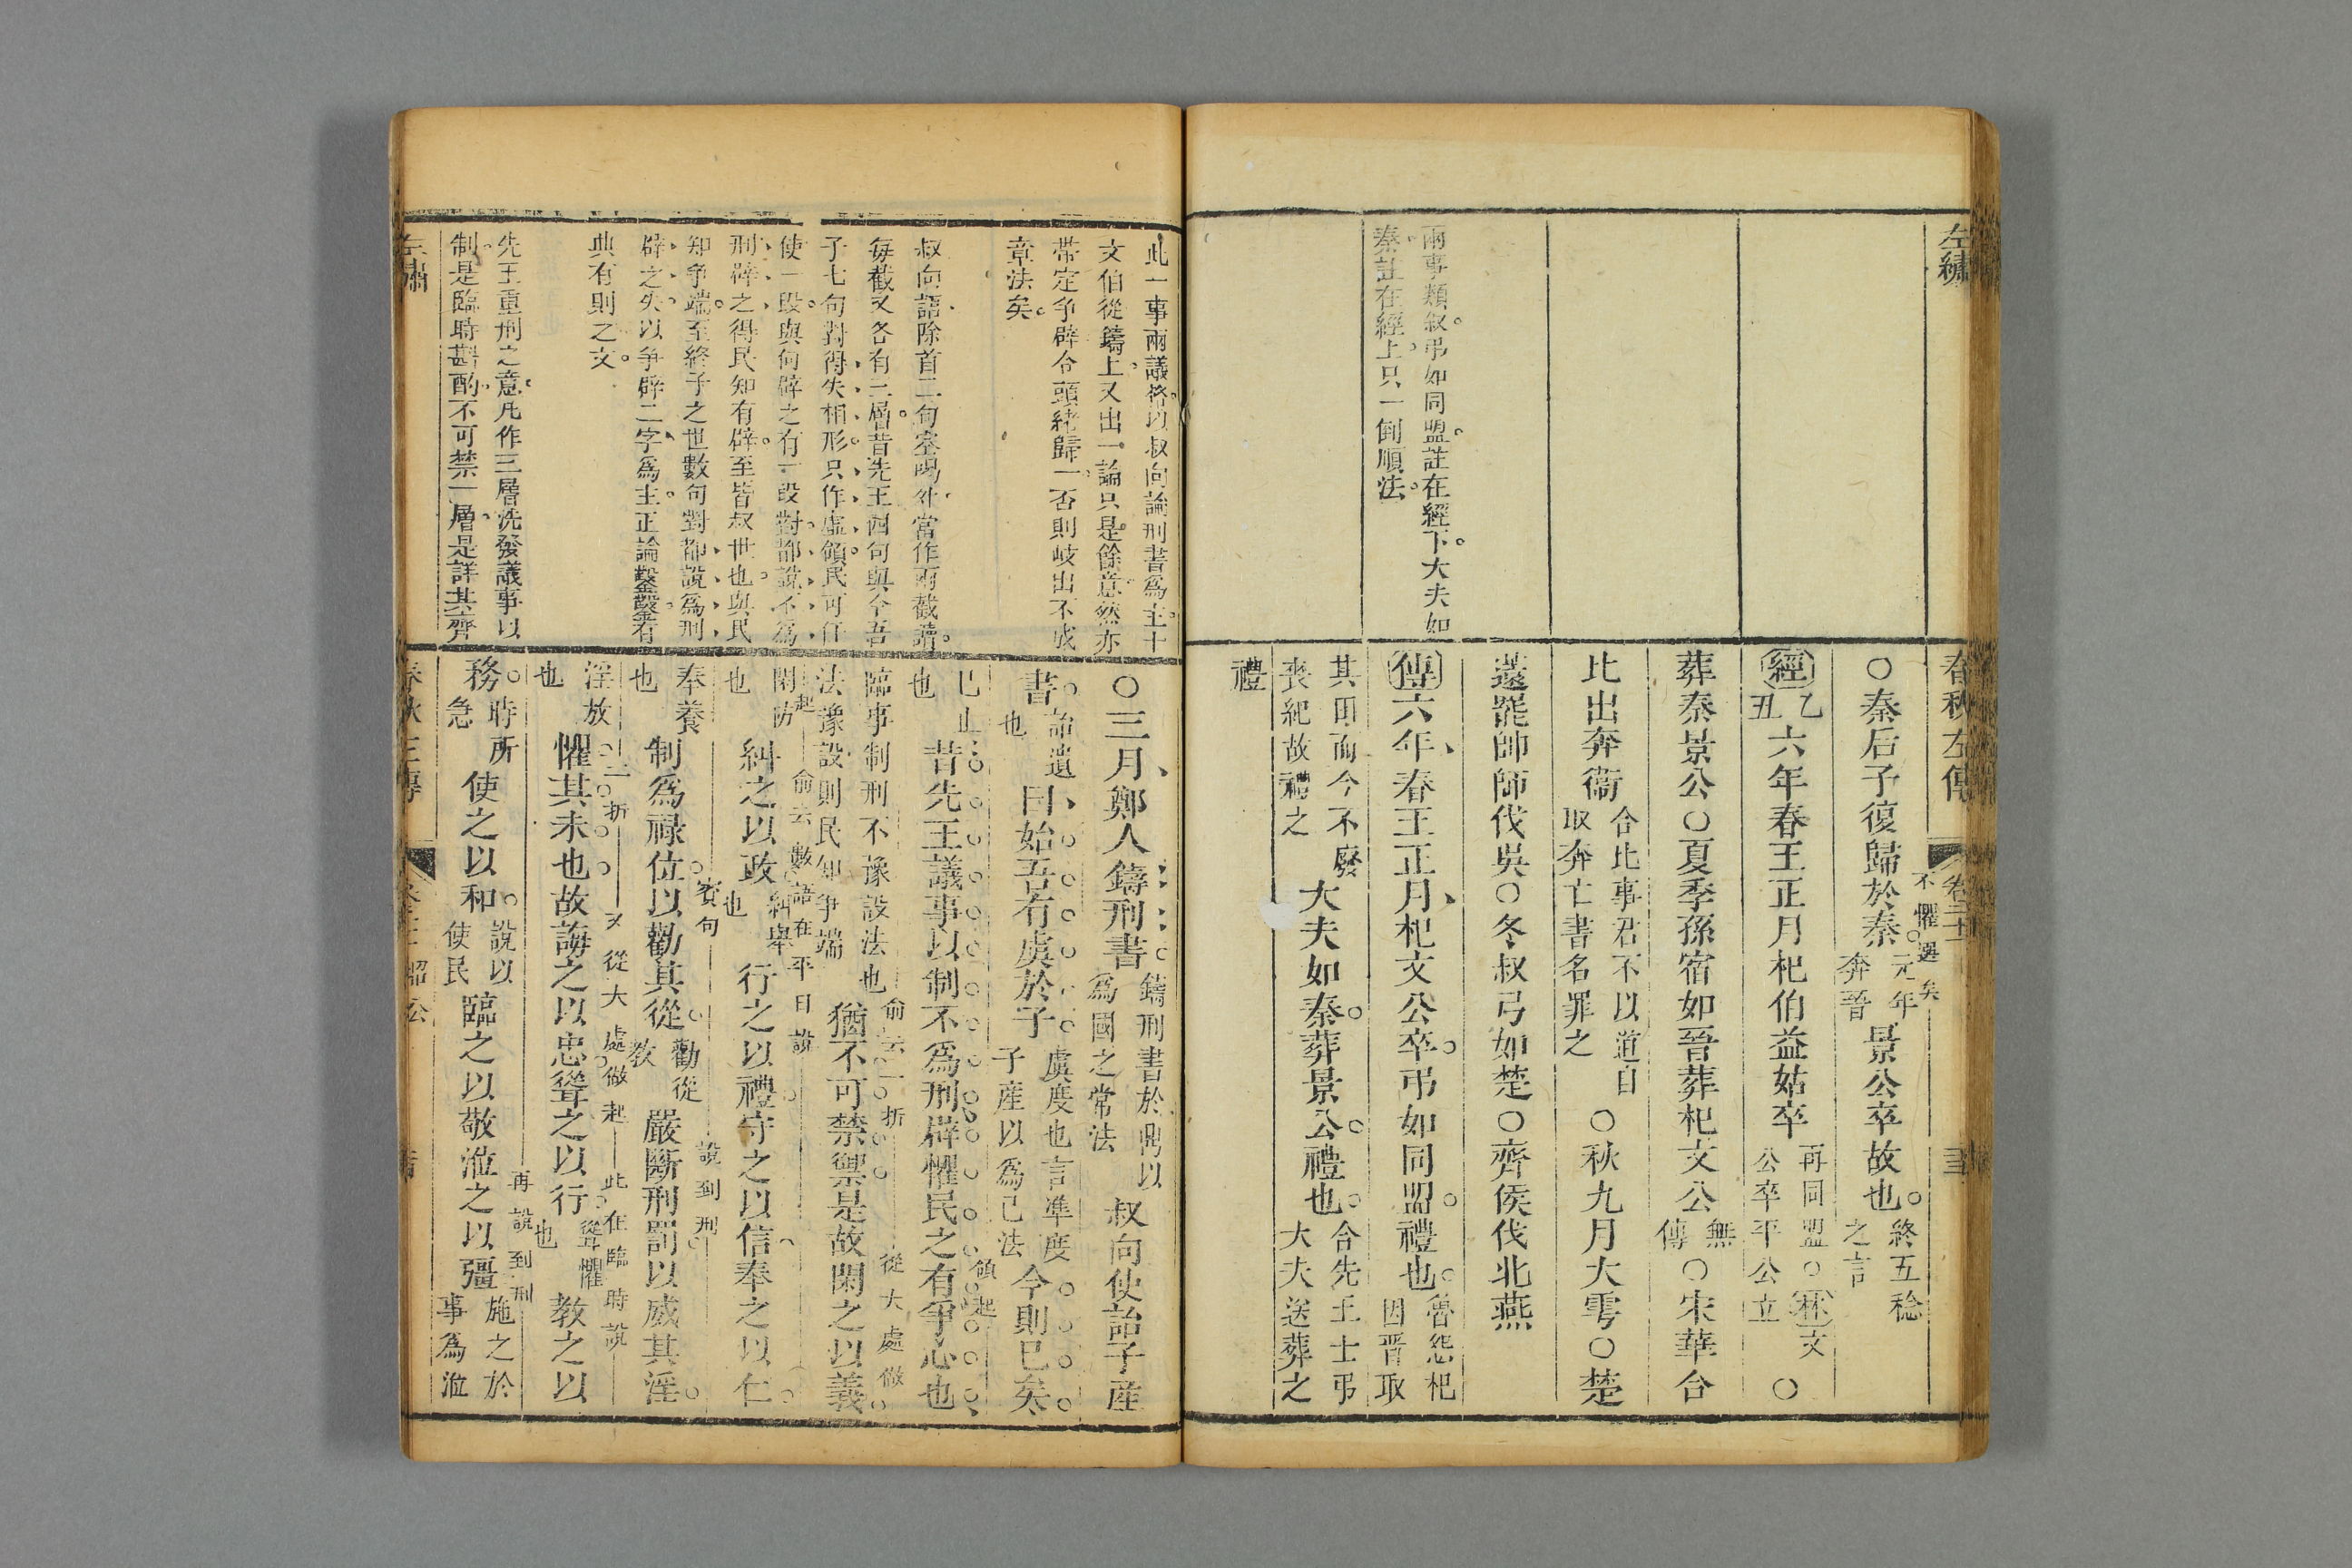 左繡
兩事類叙弔如同盟註在經下大夫如
秦註在經上只一倒順法
春秋左傳
卷二十一
○秦后子復歸於秦
不懼選矣
元年
奔晉
景公卒故也
終五稔
之言
經
乙
丑
六年春王正月杞伯益姑卒
再同盟○林文
公卒平公立
○
葬秦景公○夏季孫宿如晉葬杞文公
無
傳
○宋華合
比出奔衞
合比事君不以道自
取奔亡書名罪之
○秋九月大雩○楚
薳罷帥師伐吳○冬叔弓如楚○齊侯伐北燕
傳六年春王正月杞文公卒弔如同盟禮也
魯怨杞
因晉取
其田而今不廢
喪紀故禮之
大夫如秦葬景公禮也
合先王士弔
大夫送葬之
禮
此一事兩議格以叔向論刑書為主士
文伯從鑄上又出一論只是餘意然亦
帶定爭辟合頭緒歸一否則岐出不成
章法矣
叔向語除首二句空喝外當作兩截讀
每截又各有三層昔先王四句與今吾
子七句對得失相形只作虛領民可任
使一段與何辟之有一段對都說不為
刑辟之得民知有辟至皆叔世也與民
知爭端至終子之世數句對都說為刑
辟之失以爭辟二字為主正論鑿鑿有
典有則之文
先王重刑之意凡作三層洗發議事以
制是臨時斟酌不可禁一層是詳其齊
○三月鄭人鑄刑書
鑄刑書於鼎以
為國之常法
叔向使詒子產
書
詒遺
也
曰始吾有虞於子
虞度也言準度
子產以為己法
今則已矣
已止
也
昔先王議事以制不為刑辟懼民之有爭心也
領起
臨事制刑不豫設法也
法豫設則民知爭端
俞云一折
從大處做
猶不可禁禦是故閑之以義
閑防
也
起
俞云數語在平日說
糾之以政
糾舉
也
行之以禮守之以信奉之以仁
奉養
也
制為祿位以勸其從
賓句
勸從
教
說到刑
嚴斷刑罰以威其淫
淫放
也
二折
又從大處做起
此在臨時說
懼其未也故誨之以忠聳之以行
聳懼
也
教之以
務
時所
急
使之以和
說以
使民
臨之以敬涖之以彊
再說到刑
施之於
事為涖
左繡
春秋左傳
昭公